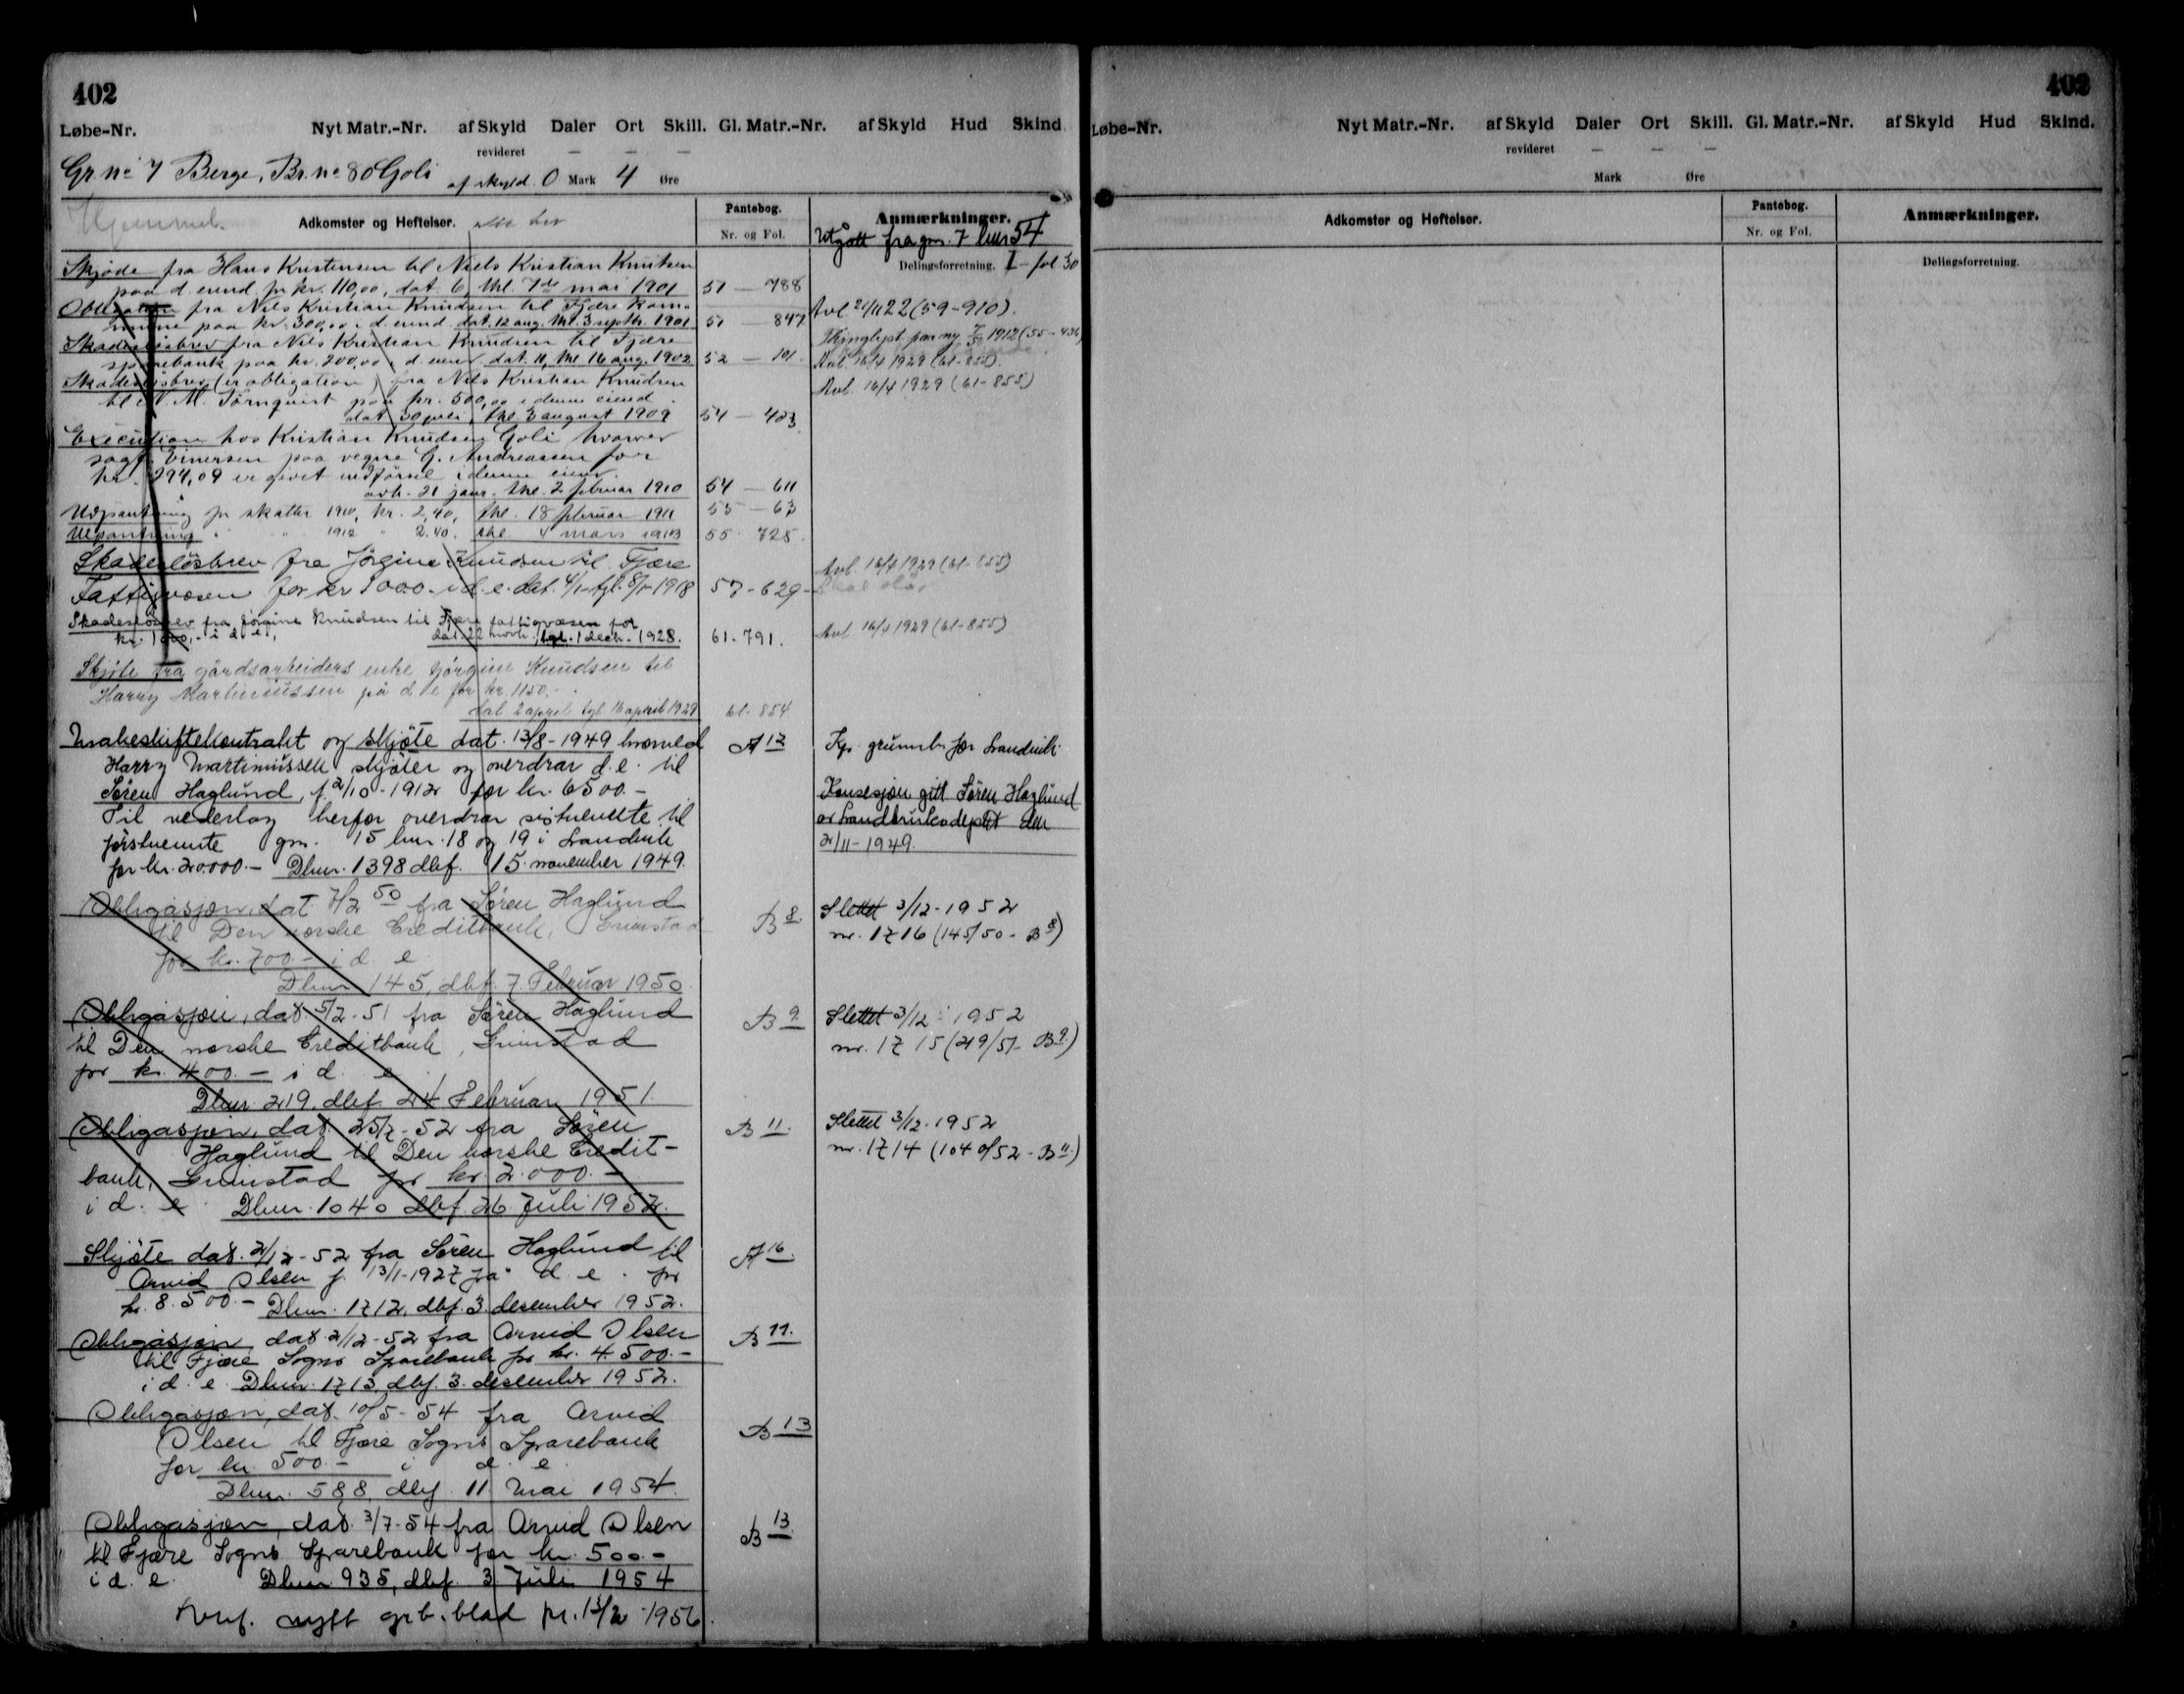 402
Løbe-Nr. Nyt Matr.-Nr. af Skyld Daler Ort Skill. Gl. Matr.-Nr. af Skyld Hud Skind
revideret — — —
Gr. nº 7 Berge, Br. nº 80 Goli af skyld. 0 Mark 4 Øre
Hjemmel. Adkomster og Heftelser.
Pantebog.
Nr. og Fol.
Anmærkninger.
Utgått fra gnr. 7 bnr 54
Delingsforretning. I - fol 30
Skjøde fra Hans Kristensen til Niels Kristian Knutsen
paa d. eiend. for kr. 110,00, dat 6, thl. 7de mai 1901 51 — 788
Obligation fra Nils Kristian Knudsen til Fjære kom-
mune paa kr. 300,00 i d. eiend dat. 12 aug. thl. 3 septbr. 1901 51 — 847
Avl. 21/11 22 (59-910).
Skadesløsbrev fra Nils Kristian Knudsen til Fjære
sparebank paa kr. 200,00 i d. eiend dat. 11, thl 16 aug. 1902 52 — 101
Thinglyst paa ny 1912 (55-436)
Avl. 16/4 1929 (61-855).
Skadesløsbrev (er obligation) fra Nils Kristian Knudsen
til M. Törnquist paa kr. 500,00 i denne eiend.
dat 30 juli, thl. 3 august 1909 54 — 423
Avl. 16/4 1929 (61-855)
Execution hos Kristian Knudsen Goli hvorver
sagf. Einersen paa vegne G. Andreassen for
kr. 294,09 er givet indførsel i denne eiend.
avh. 21 janr. thl. 2 februar 1910 54 — 611
Udpantning for skatter 1910, kr. 2,40, thl. 18 februar 1911 55 — 63
Udpantning " " 1912 " 2.40. thl. 4 mars 1913 55 725.
Skadesløsbrev fra Jörgine Knudsen til Fjære
Fattigvæsen for kr 1000.- i d. e. dat. 4/1 tgl. 8/1 1918 57-629-
Avl. 16/4 1929 (61-855)
Skadesløsbrev fra Jörgine Knudsen til Fjære fattigvæsen for
kr. 1000,- i d. e., dat. 22 novb., tgl. 1 dech. 1928. 61-791.
Avl 16/4 1929 (61-855)
Skjöte fra gårdsarbeiders enke Jörgine Knudsen til
Harry Martiniussen på d e for kr. 1150.-
dat 2 april tgl. 16 april 1929 61-854
Makeskiftekontrakt og skjöte dat. 13/8-1949 hvorved A 12
Harry Martiniussen skjöter og overdrar d. e. til
Sören Haglund, f. 2/10-1912 for kr. 6500.-
Til vederlag herfor overdrar sistnevnte til
förstnevnte gnr. 15 bnr. 18 og 19 i Landvik
for kr. 20.000.- Dbnr. 1398 dbf. 15. november 1949.
Kfr. grunnb. for Landvik.
Konsesjon gitt Sören Haglund
av Landbruksdeptet den
2/11-1949.
Obligasjon, dat 7/2 50 fra Sören Haglund B 8.
til Den norske Creditbank, Grimstad
for kr. 700.- i d. e.
Dbnr 145, dbf. 7. Februar 1950
Slettet 3/12-1952
nr. 1716 (145/50 - B 8)
Obligasjon, dat 5/2-51 fra Sören Haglund B 9.
til Den norske Creditbank, Grimstad
for kr. 400.- i d. e.
Dbnr. 219, dbf. 24 Februar 1951.
Slettet 3/12 1952
nr. 1715 (219/51- B 9.)
Obligasjon, dat. 25/7-52 fra Sören B 11.
Haglund til Den norske Credit-
bank, Grimstad for kr. 2.000.-
i d. e. Dbnr. 1040 dbf. 26 Juli 1952.
Slettet 3/12-1952
nr. 1714 (1040/52 - B 11.)
Skjöte dat. 2/12-52 fra Sören Haglund til A 16.
Arvid Olsen f. 13/1-1927 på d. e. for
kr. 8.500.- Dbnr. 1712, dbf. 3. desember 1952.
Obligasjon dat. 2/12-52 fra Arvid Olsen B 11.
til Fjære Sogns Sparebank for kr. 4.500.-
i d. e. Dbnr. 1713, dbf. 3. desember 1952.
Obligasjon, dat. 10/5-54 fra Arvid B 13
Olsen til Fjære Sogns Sparebank
for kr. 500.- i d. e.
Dbnr. 588, dbf. 11 Mai 1954.
Obligasjon, dat. 3/7-54 fra Arvid Olsen B 13.
til Fjære Sogns Sparebank for kr. 500.-
i d. e. Dbnr 935, dbf. 3 Juli 1954
nytt grb.blad pr. 1956.
402
Løbe-Nr. Nyt Matr.-Nr. af Skyld Daler Ort Skill. Gl. Matr.-Nr. af Skyld Hud Skind.
revideret — — —
Mark Øre
Adkomster og Heftelser.
Pantebog.
Nr. og Fol.
Anmærkninger.
Delingsforretning.